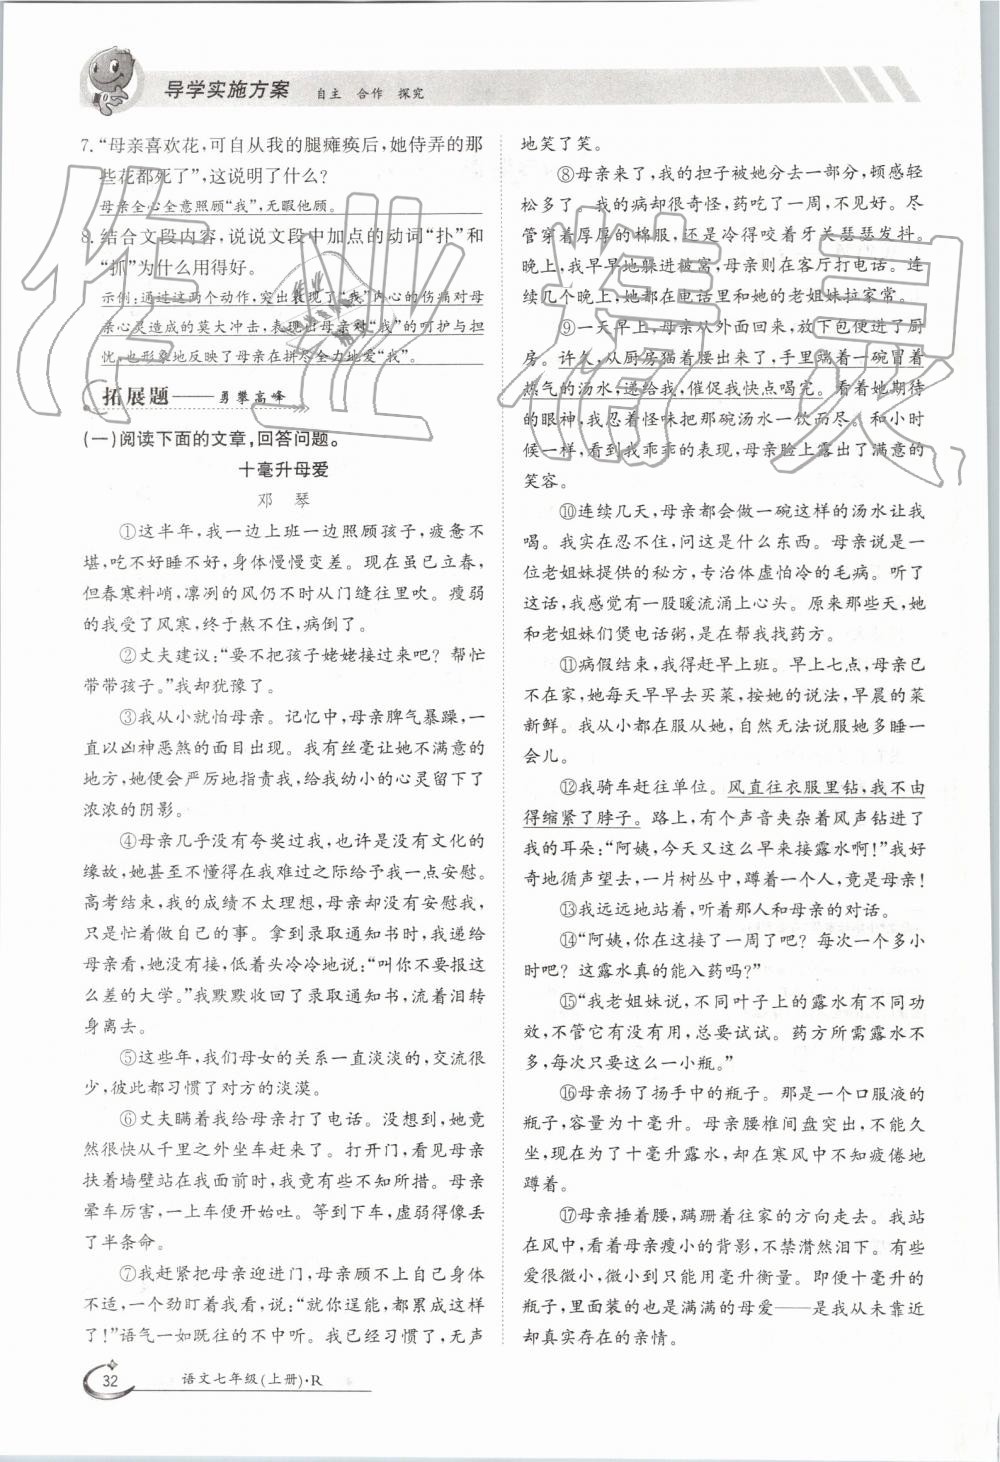 导学实施方案 自主 合作 探究
7.“母亲喜欢花,可自从我的腿瘫痪后,她侍弄的那
些花都死了”,这说明了什么?
母亲全心全意照顾“我”,无暇他顾。
8.结合文段内容,说说文段中加点的动词“扑”和
“抓”为什么用得好。
示例:通过这两个动作,突出表现了“我”内心的伤痛对母
亲心灵造成的莫大冲击,表现出母亲对“我”的呵护与担
忧,也形象地反映了母亲在拼尽全力地爱“我”。
拓展题——勇攀高峰
(一)阅读下面的文章,回答问题。
十毫升母爱
邓 琴
①这半年,我一边上班一边照顾孩子,疲惫不
堪,吃不好睡不好,身体慢慢变差。现在虽已立春,
但春寒料峭,凛冽的风仍不时从门缝往里吹。瘦弱
的我受了风寒,终于熬不住,病倒了。
②丈夫建议:“要不把孩子姥姥接过来吧?帮忙
带带孩子。”我却犹豫了。
③我从小就怕母亲。记忆中,母亲脾气暴躁,一
直以凶神恶煞的面目出现。我有丝毫让她不满意的
地方,她便会严厉地指责我,给我幼小的心灵留下了
浓浓的阴影。
④母亲几乎没有夸奖过我,也许是没有文化的
缘故,她甚至不懂得在我难过之际给予我一点安慰。
高考结束,我的成绩不太理想,母亲却没有安慰我,
只是忙着做自己的事。拿到录取通知书时,我递给
母亲看,她没有接,低着头冷冷地说:“叫你不要报这
么差的大学。”我默默收回了录取通知书,流着泪转
身离去。
⑤这些年,我们母女的关系一直淡淡的,交流很
少,彼此都习惯了对方的淡漠。
⑥丈夫瞒着我给母亲打了电话。没想到,她竟
然很快从千里之外坐车赶来了。打开门,看见母亲
扶着墙壁站在我面前时,我竟有些不知所措。母亲
晕车厉害,一上车便开始吐。等到下车,虚弱得像丢
了半条命。
⑦我赶紧把母亲迎进门,母亲顾不上自己身体
不适,一个劲盯着我看,说:“就你逞能,都累成这样
了!”语气一如既往的不中听。我已经习惯了,无声
地笑了笑。
⑧母亲来了,我的担子被她分去一部分,顿感轻
松多了 我的病却很奇怪,药吃了一周,不见好。尽
管穿着厚厚的棉服,还是冷得咬着牙关瑟瑟发抖。
晚上,我早早地躲进被窝,母亲则在客厅打电话。连
续几个晚上,她都在电话里和她的老姐妹拉家常。
⑨一天早上,母亲从外面回来,放下包便进了厨
房。许久,从厨房猫着腰出来了,手里端着一碗冒着
热气的汤水,递给我,催促我快点喝完。看着她期待
的眼神,我忍着怪味把那碗汤水一饮而尽。和小时
候一样,看到我乖乖的表现,母亲脸上露出了满意的
笑容。
⑩连续几天,母亲都会做一碗这样的汤水让我
喝。我实在忍不住,问这是什么东西。母亲说是一
位老姐妹提供的秘方,专治体虚怕冷的毛病。听了
这话,我感觉有一股暖流涌上心头。原来那些天,她
和老姐妹们煲电话粥,是在帮我找药方。
⑪病假结束,我得赶早上班。早上七点,母亲已
不在家,她每天早早去买菜,按她的说法,早晨的菜
新鲜。我从小都在服从她,自然无法说服她多睡一
会儿。
⑫我骑车赶往单位。风直往衣服里钻,我不由
得缩紧了脖子。路上,有个声音夹杂着风声钻进了
我的耳朵:“阿姨,今天又这么早来接露水啊!”我好
奇地循声望去,一片树丛中,蹲着一个人,竟是母亲!
⑬我远远地站着,听着那人和母亲的对话。
⑭“阿姨,你在这接了一周了吧?每次一个多小
时吧?这露水真的能入药吗?”
⑮“我老姐妹说,不同叶子上的露水有不同功
效,不管它有没有用,总要试试。药方所需露水不
多,每次只要这么一小瓶。”
⑯母亲扬了扬手中的瓶子。那是一个口服液的
瓶子,容量为十毫升。母亲腰椎间盘突出,不能久
坐,现在为了十毫升露水,却在寒风中不知疲倦地
蹲着。
⑰母亲捶着腰,蹒跚着往家的方向走去。我站
在风中,看着母亲瘦小的背影,不禁潸然泪下。有些
爱很微小,微小到只能用毫升衡量。即便十毫升的
瓶子,里面装的也是满满的母爱——是我从未靠近
却真实存在的亲情。
32 语文七年级(上册)·R
作业精灵